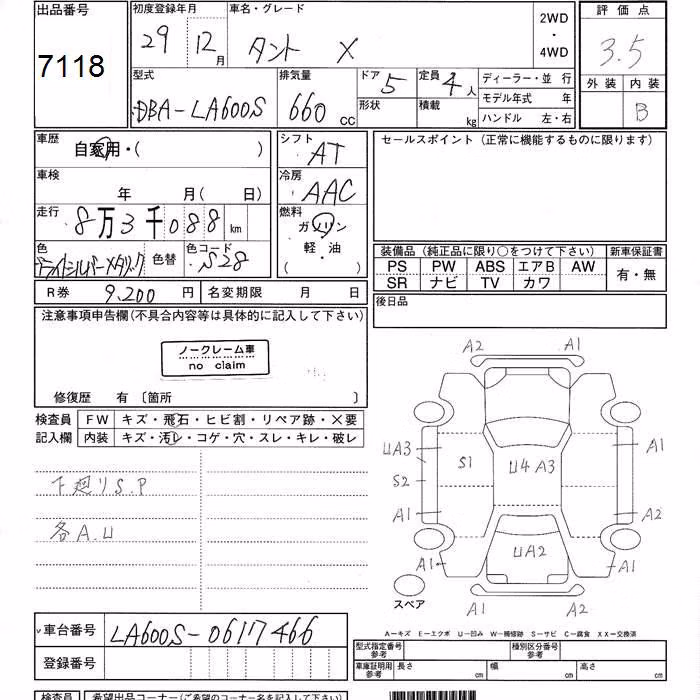 出品番号 初度登録年月 車名・グレード 2WD 評価点
7118 29年 12月 タント X ・ 3.5
4WD
型式 排気量 ドア 5 定員 4人 ディーラー・並 行 外装 内装
DBA-LA600S 660cc 形状 積載 kg モデル年式 年 B
ハンドル 左・右
車歴 自家用・( ) シフト AT セールスポイント(正常に機能するものに限ります)
車検 年 月( 日) 冷房 AAC
走行 8万3千088km 燃料 ガソリン
軽・油
( )
色 色替 色コード S28 装備品(純正品に限り○をつけて下さい) 新車保証書
PS PW ABS エアB AW 有・無
SR ナビ TV カワ
R券 9,200円 名変期限 月 日 後日品
注意事項申告欄(不具合内容等は具体的に記入して下さい)
ノークレーム車
no claim
修復歴 有 〔箇所 〕
検査員 FW キズ・飛石・ヒビ割・リペア跡・×要
記入欄 内装 キズ・汚レ・コゲ・穴・スレ・キレ・破レ
下廻りS.P
各A.U
A2 A1
UA3 S1 U4 A3 A1
S2
A1 A2
UA2
A1 A1
スペア A1 A2
A-キズ E-エクボ U-凹み W-補修跡 S-サビ C-腐食 XX-交換済
車台番号 LA600S-0617466
登録番号
型式指定番号 参考 種別区分番号 参考
車庫証明用 参考 長さ cm 幅 cm 高さ cm
検査員 希望出品コーナー(ご希望のコーナー名を記入して下さい)